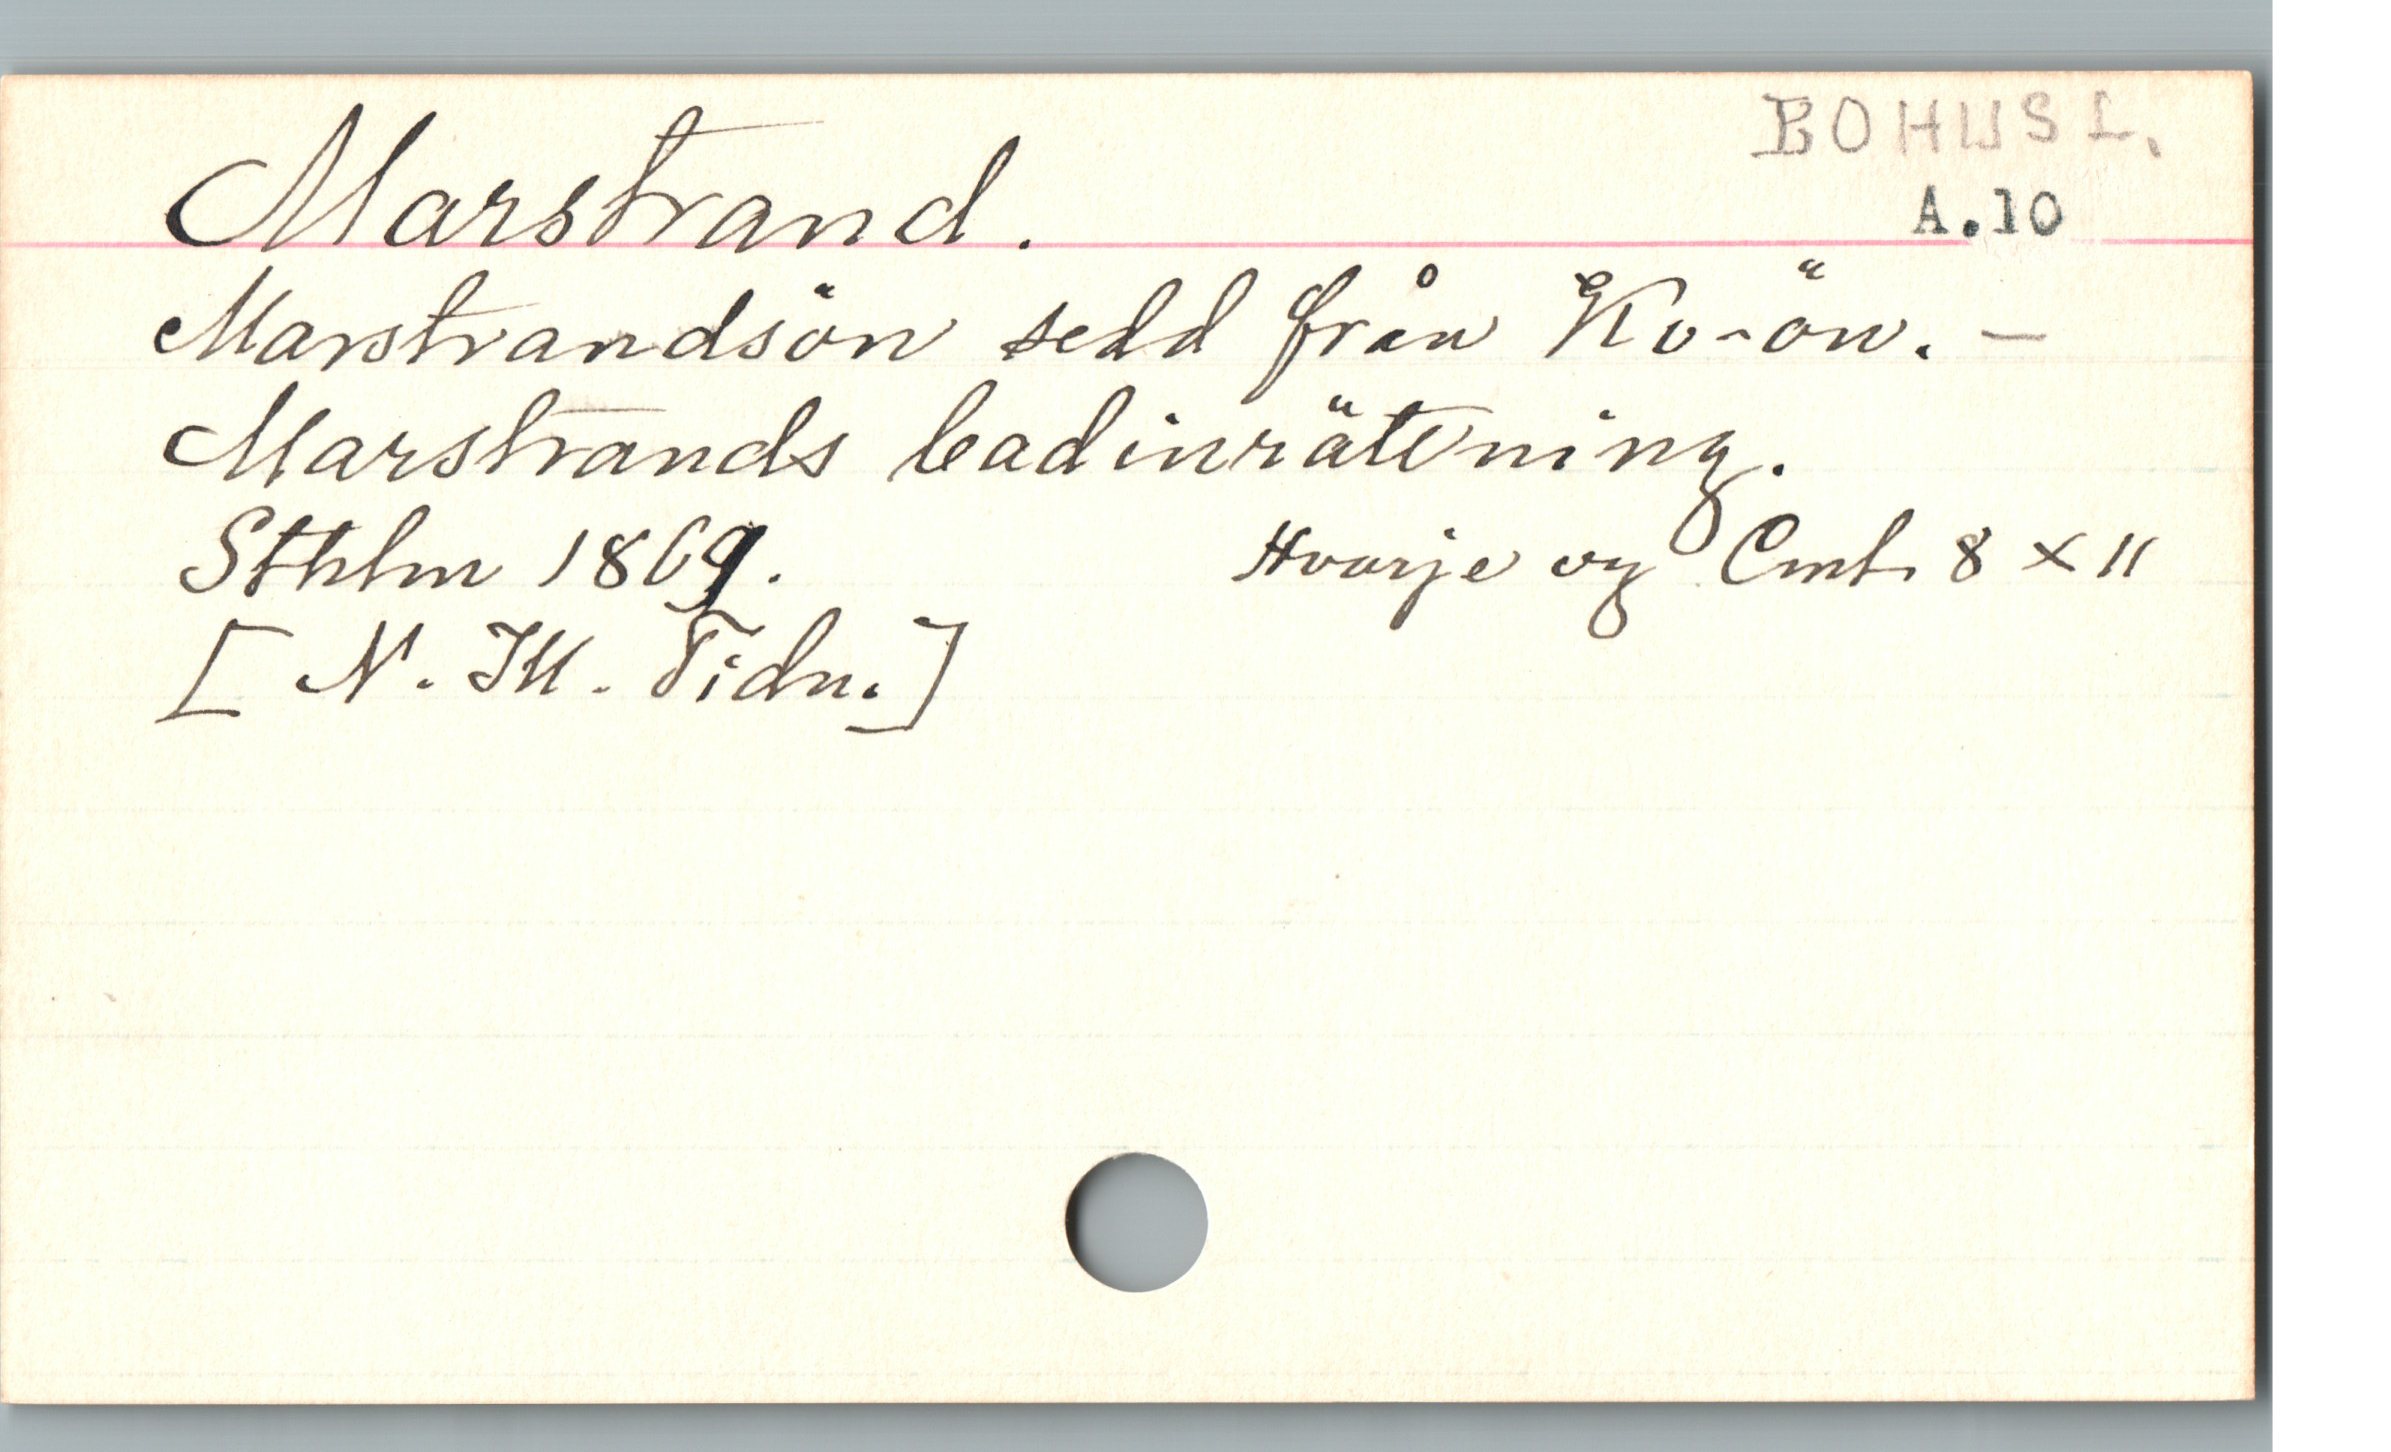 BOHUSL.
Marstrand. A.10
Marstrandsön sedd från Ko-ön. —
Marstrands badinrättning.
Sthlm 1869. Hvarje vy Cmt. 8 x 11
[N. Ill. Tidn.]